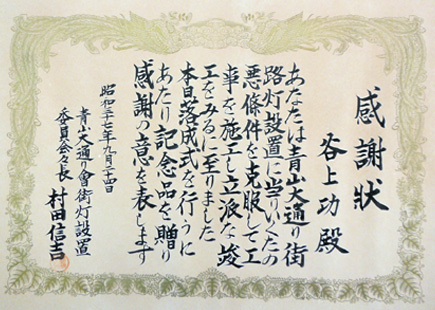 感謝狀
谷上功殿
あなたは青山大通り街
路灯設置に当りいくたの
悪條件を克服して工
事を施工し立派な竣
工をみるに至りました
本日落成式を行うに
あたり記念品を贈り
感謝の意を表します
昭和三十七年九月二十四日
青山大通り會街灯設置
委員会々長
村田信吉